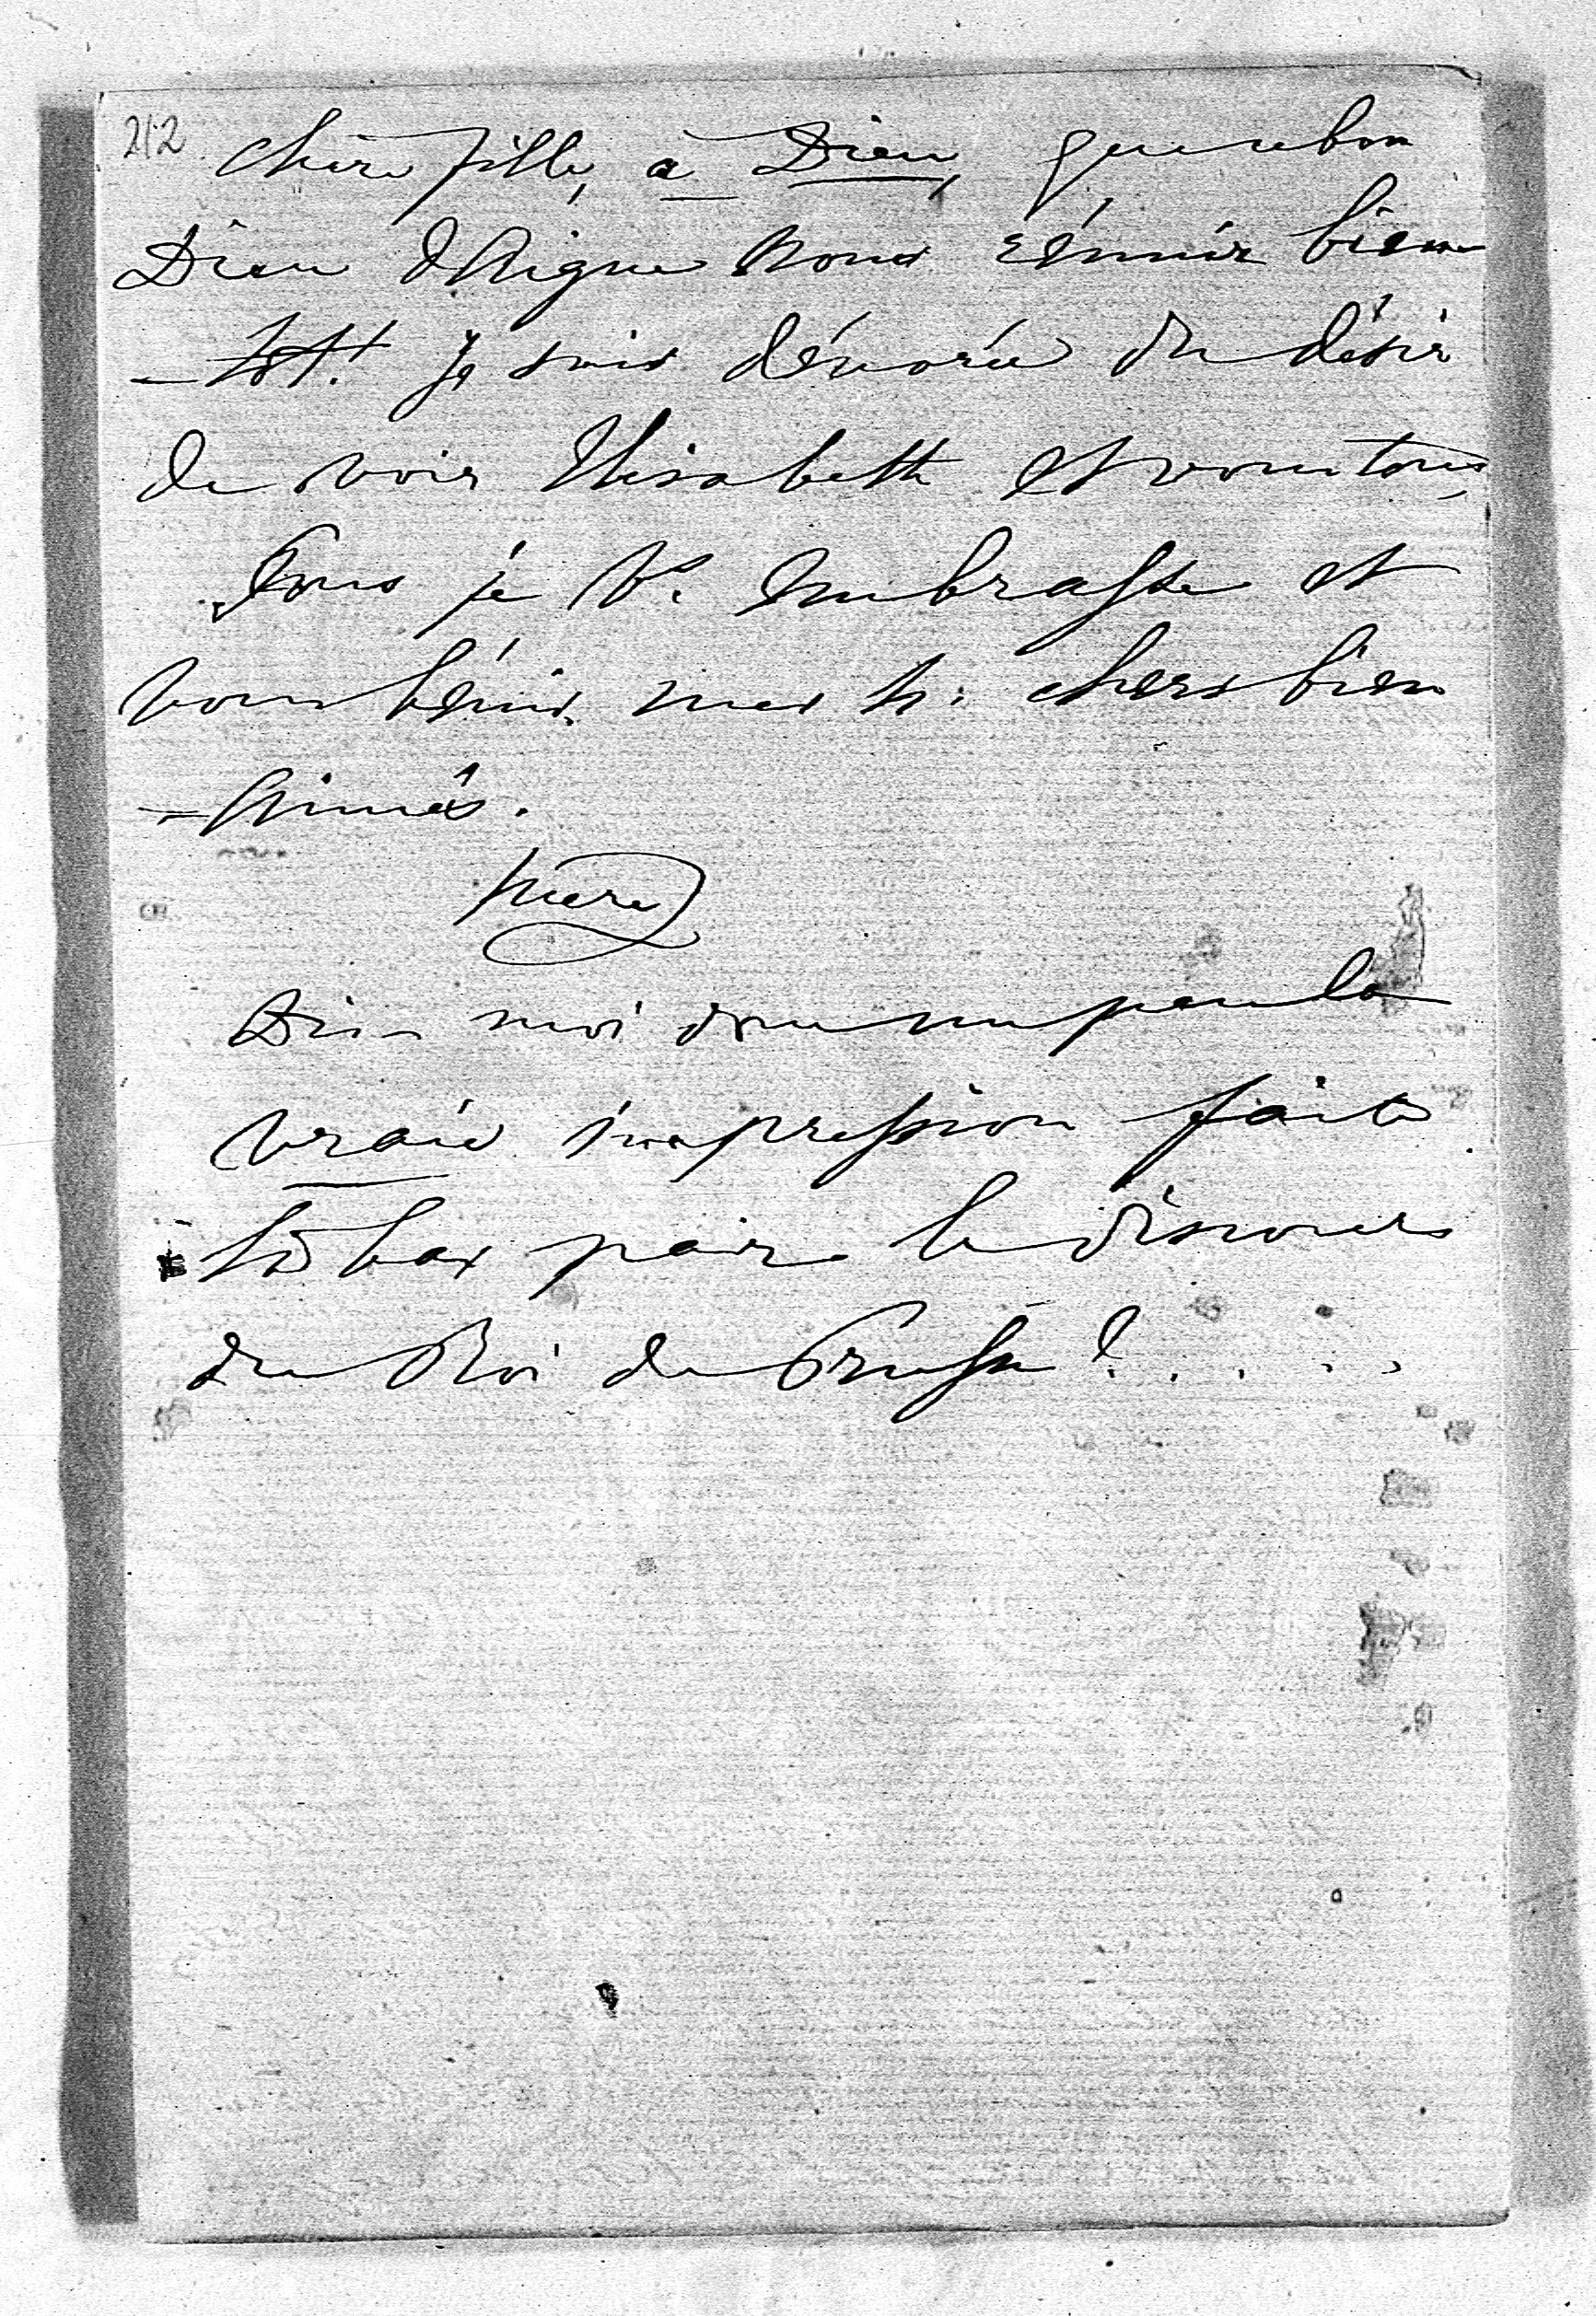 212
chère fille, à Dieu, que ce bon
Dieu daigne nous réunir bien
-tôt! Je suis dévorée du désir
de voir Elisabeth et vous tous,
Tous je Vs. embrasse et
vous bénis mes tr: chers bien
-Aimés.
Mère
Dis-moi donc un peu la
vraie impression faite
là bas par le discours
du Roi de Prusse! . . . .